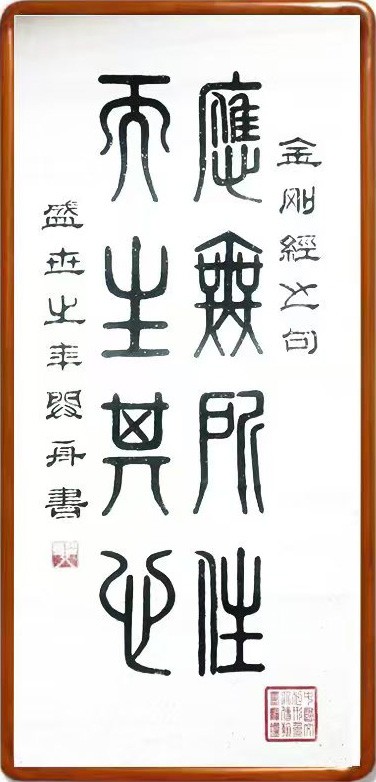 金剛經之句
應無所住
而生其心
盛世之年舟書